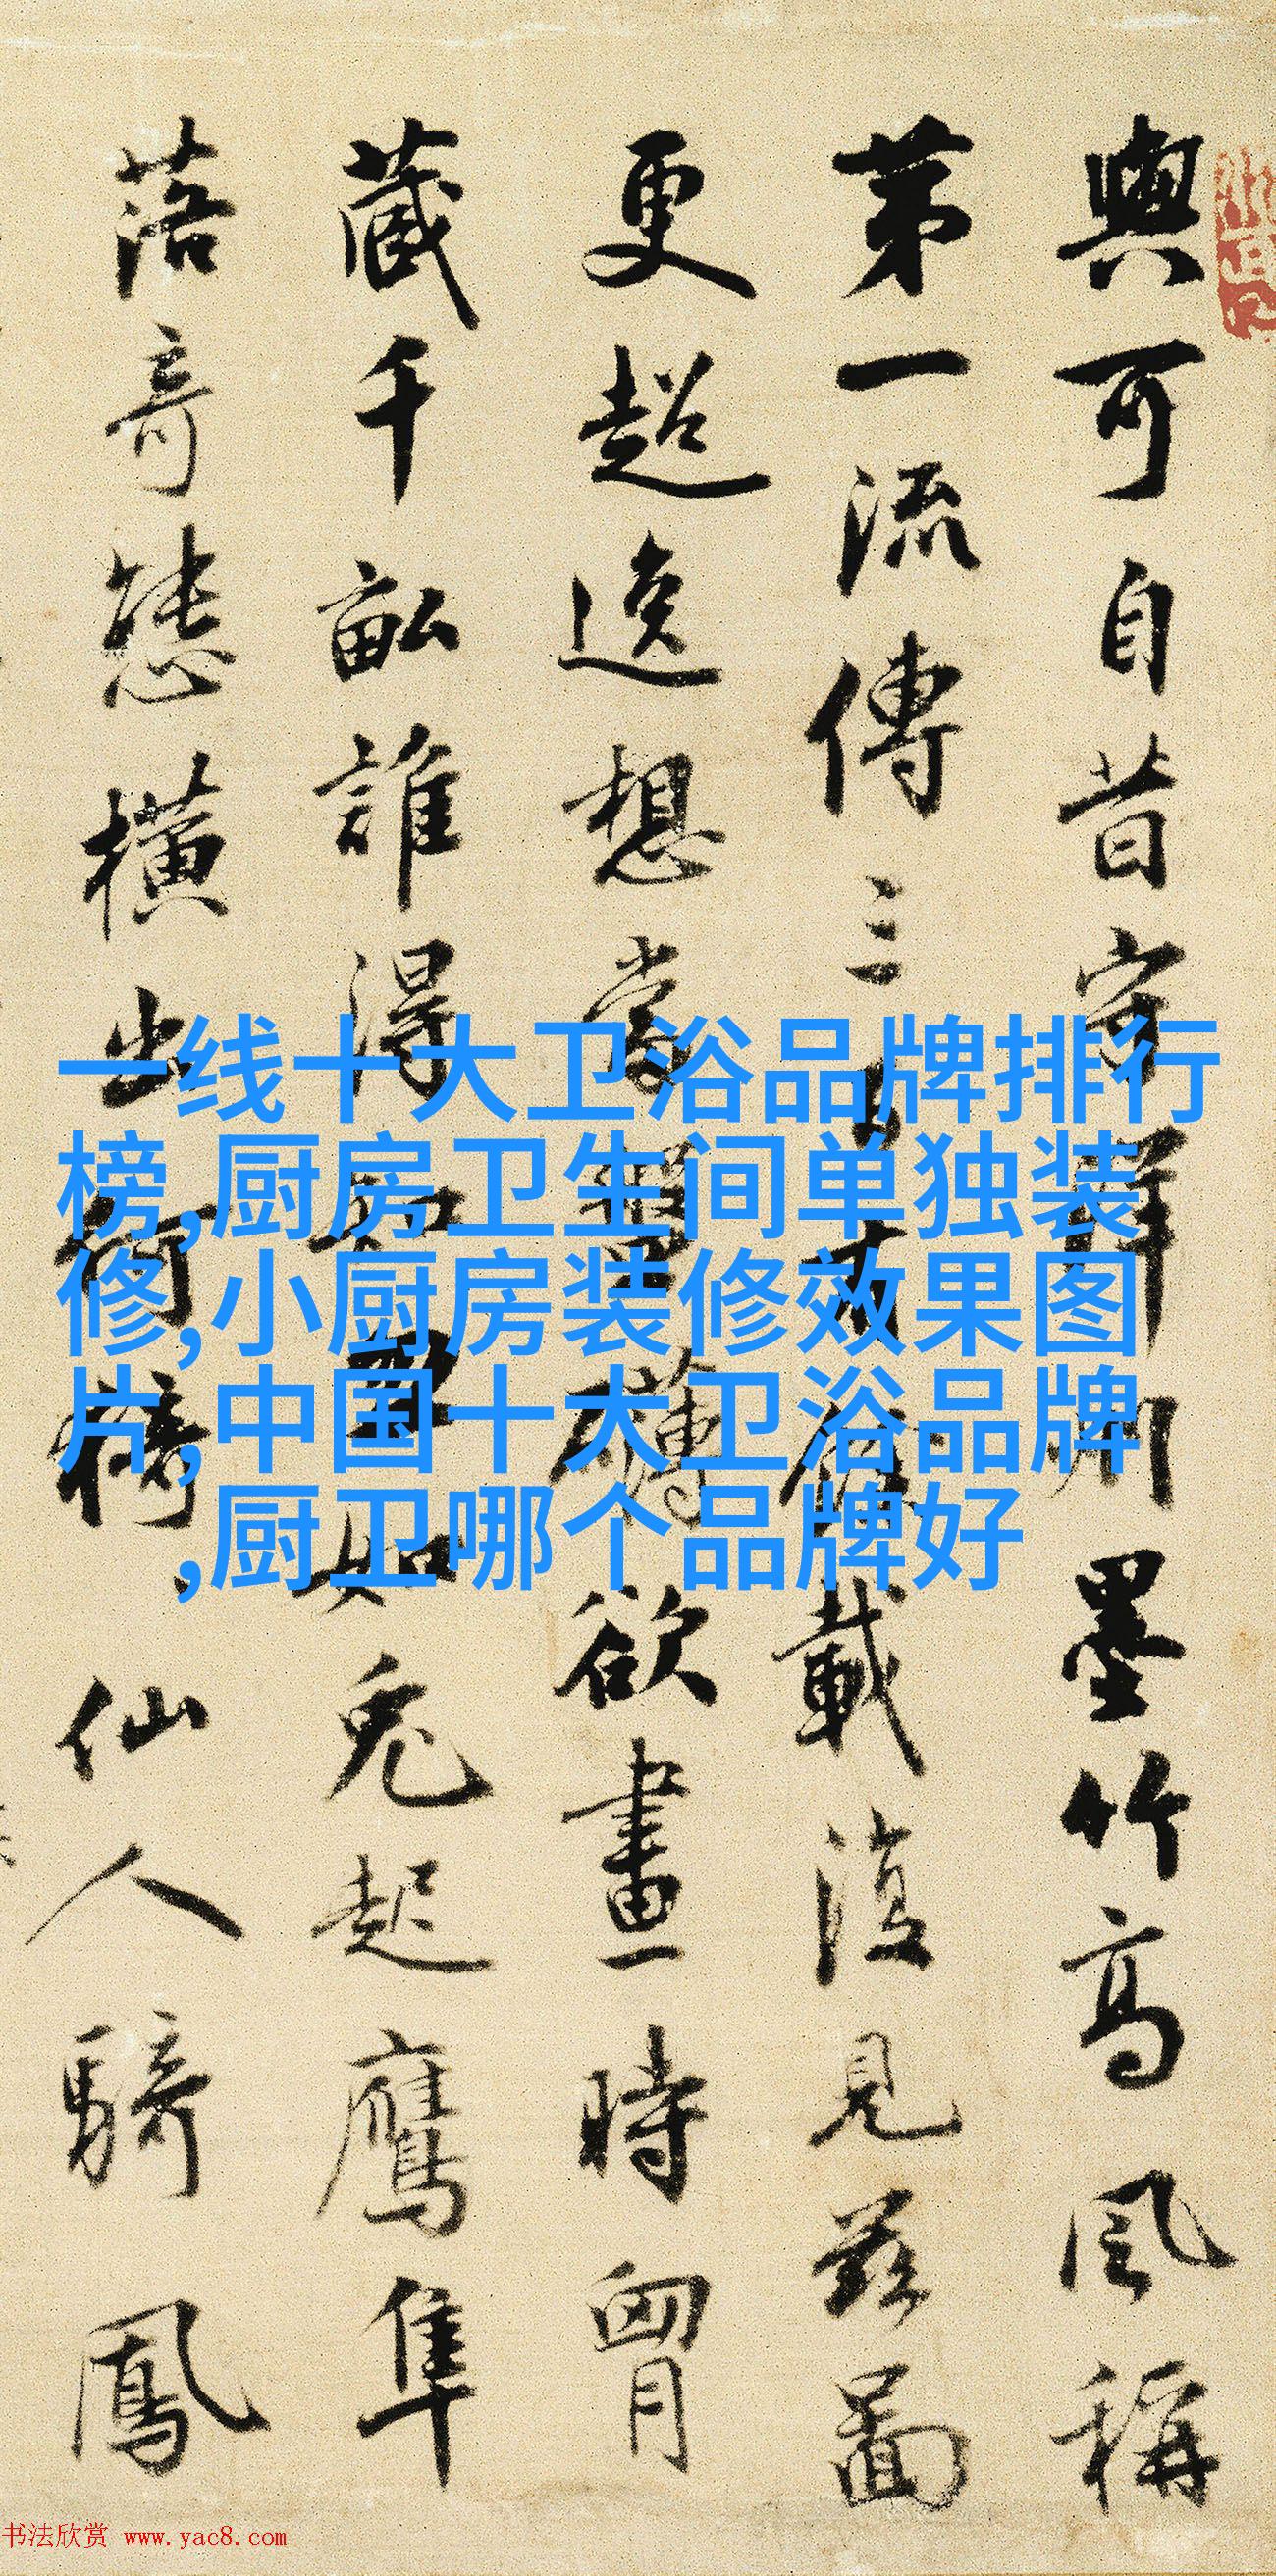 與可自昔守洋州墨竹高風稱
第一流傳三百有餘載復見茲圖
更超逸想當盤礴欲畫時胸
藏千畝誰得知如兔起鷹隼
落奇態橫出何猗仙人騎鳳
一线十大卫浴品牌排行
榜,厨房卫生间单独装
修,小厨房装修效果图
片,中国十大卫浴品牌
,厨卫哪个品牌好
书法欣赏 www.yac8.com